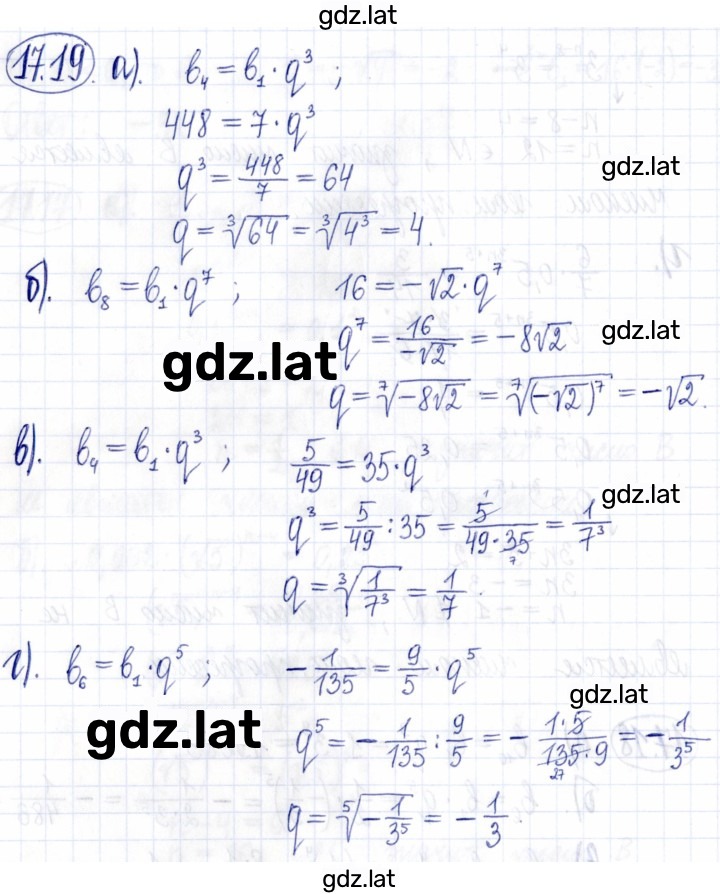 gdz.lat
17.19 а). b₄ = b₁ · q³ ;
448 = 7 · q³
gdz.lat
q³ = 448/7 = 64
q = ∛64 = ∛4³ = 4.
б). b₈ = b₁ · q⁷ ; 16 = −√2 · q⁷
gdz.lat
q⁷ = 16/−√2 = −8√2
gdz.lat
q = ⁷√−8√2 = ⁷√(−√2)⁷ = −√2.
в). b₄ = b₁ · q³ ; 5/49 = 35 · q³
gdz.lat
q³ = 5/49 : 35 = 5/49·35 = 1/7³
1 7
q = ∛1/7³ = 1/7.
г). b₆ = b₁ · q⁵ ; −1/135 = 9/5 · q⁵
gdz.lat
gdz.lat
q⁵ = −1/135 : 9/5 = −1·5/135·9 = −1/3⁵
27
q = ⁵√−1/3⁵ = −1/3.
gdz.lat